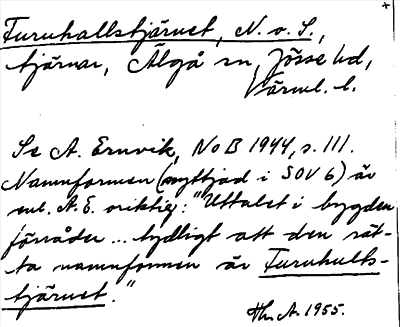 Furuhallstjärnet, N. o. S.,
tjärnar, Älgå sn, Jösse hd,
Värml. l.
Se A. Ernvik, NoB 1944, s. 111.
Namnformen (nyttjad i SOV 6) är
enl. A. E. oriktig: "Uttalet i bygden
förråder ... tydligt att den rät-
ta namnformen är Furuhults-
tjärnet."
A. 1955.